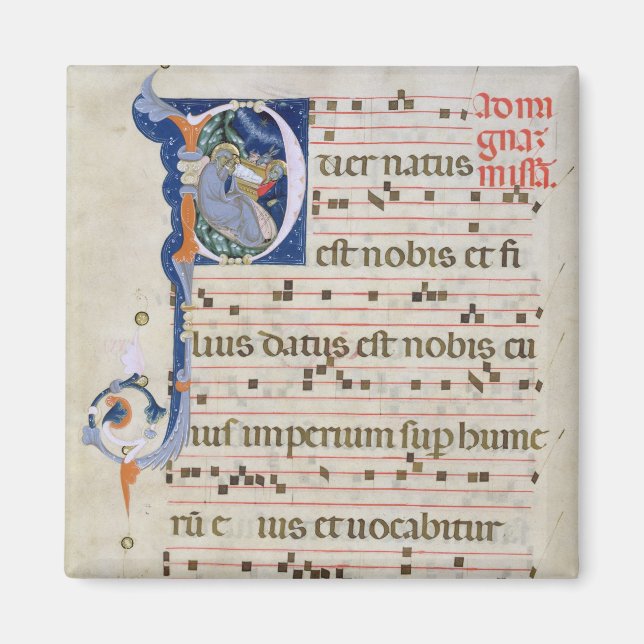 Ad ma
gnaz
missā.
Puer natus
est nobis et fi
lius datus est nobis cu
ius imperium sup hume
rū e ius et uocabitur